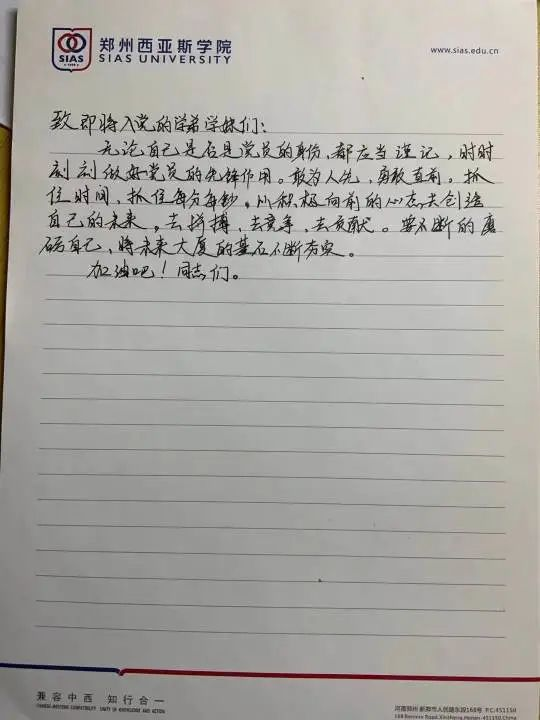 郑州西亚斯学院
SIAS UNIVERSITY
SIAS
www.sias.edu.cn
致即将入党的学弟学妹们：
无论自己是否是党员的身份，都应当谨记，时时
刻刻做好党员的先锋作用。敢为人先，勇敢直前。抓
住时间，抓住每分每秒。以积极向前的心态去创造
自己的未来。去拼搏，去竞争，去贡献。要不断的磨
砺自己，将未来大厦的基石不断夯实。
加油吧！同志们。
兼容中西 知行合一
CHINESE-WESTERN COMPATIBILITY UNITY OF KNOWLEDGE AND ACTION
河南郑州 新郑市人民路东段168号 P.C:451150
168 Renmin Road,Xinzheng,Henan-451150.China